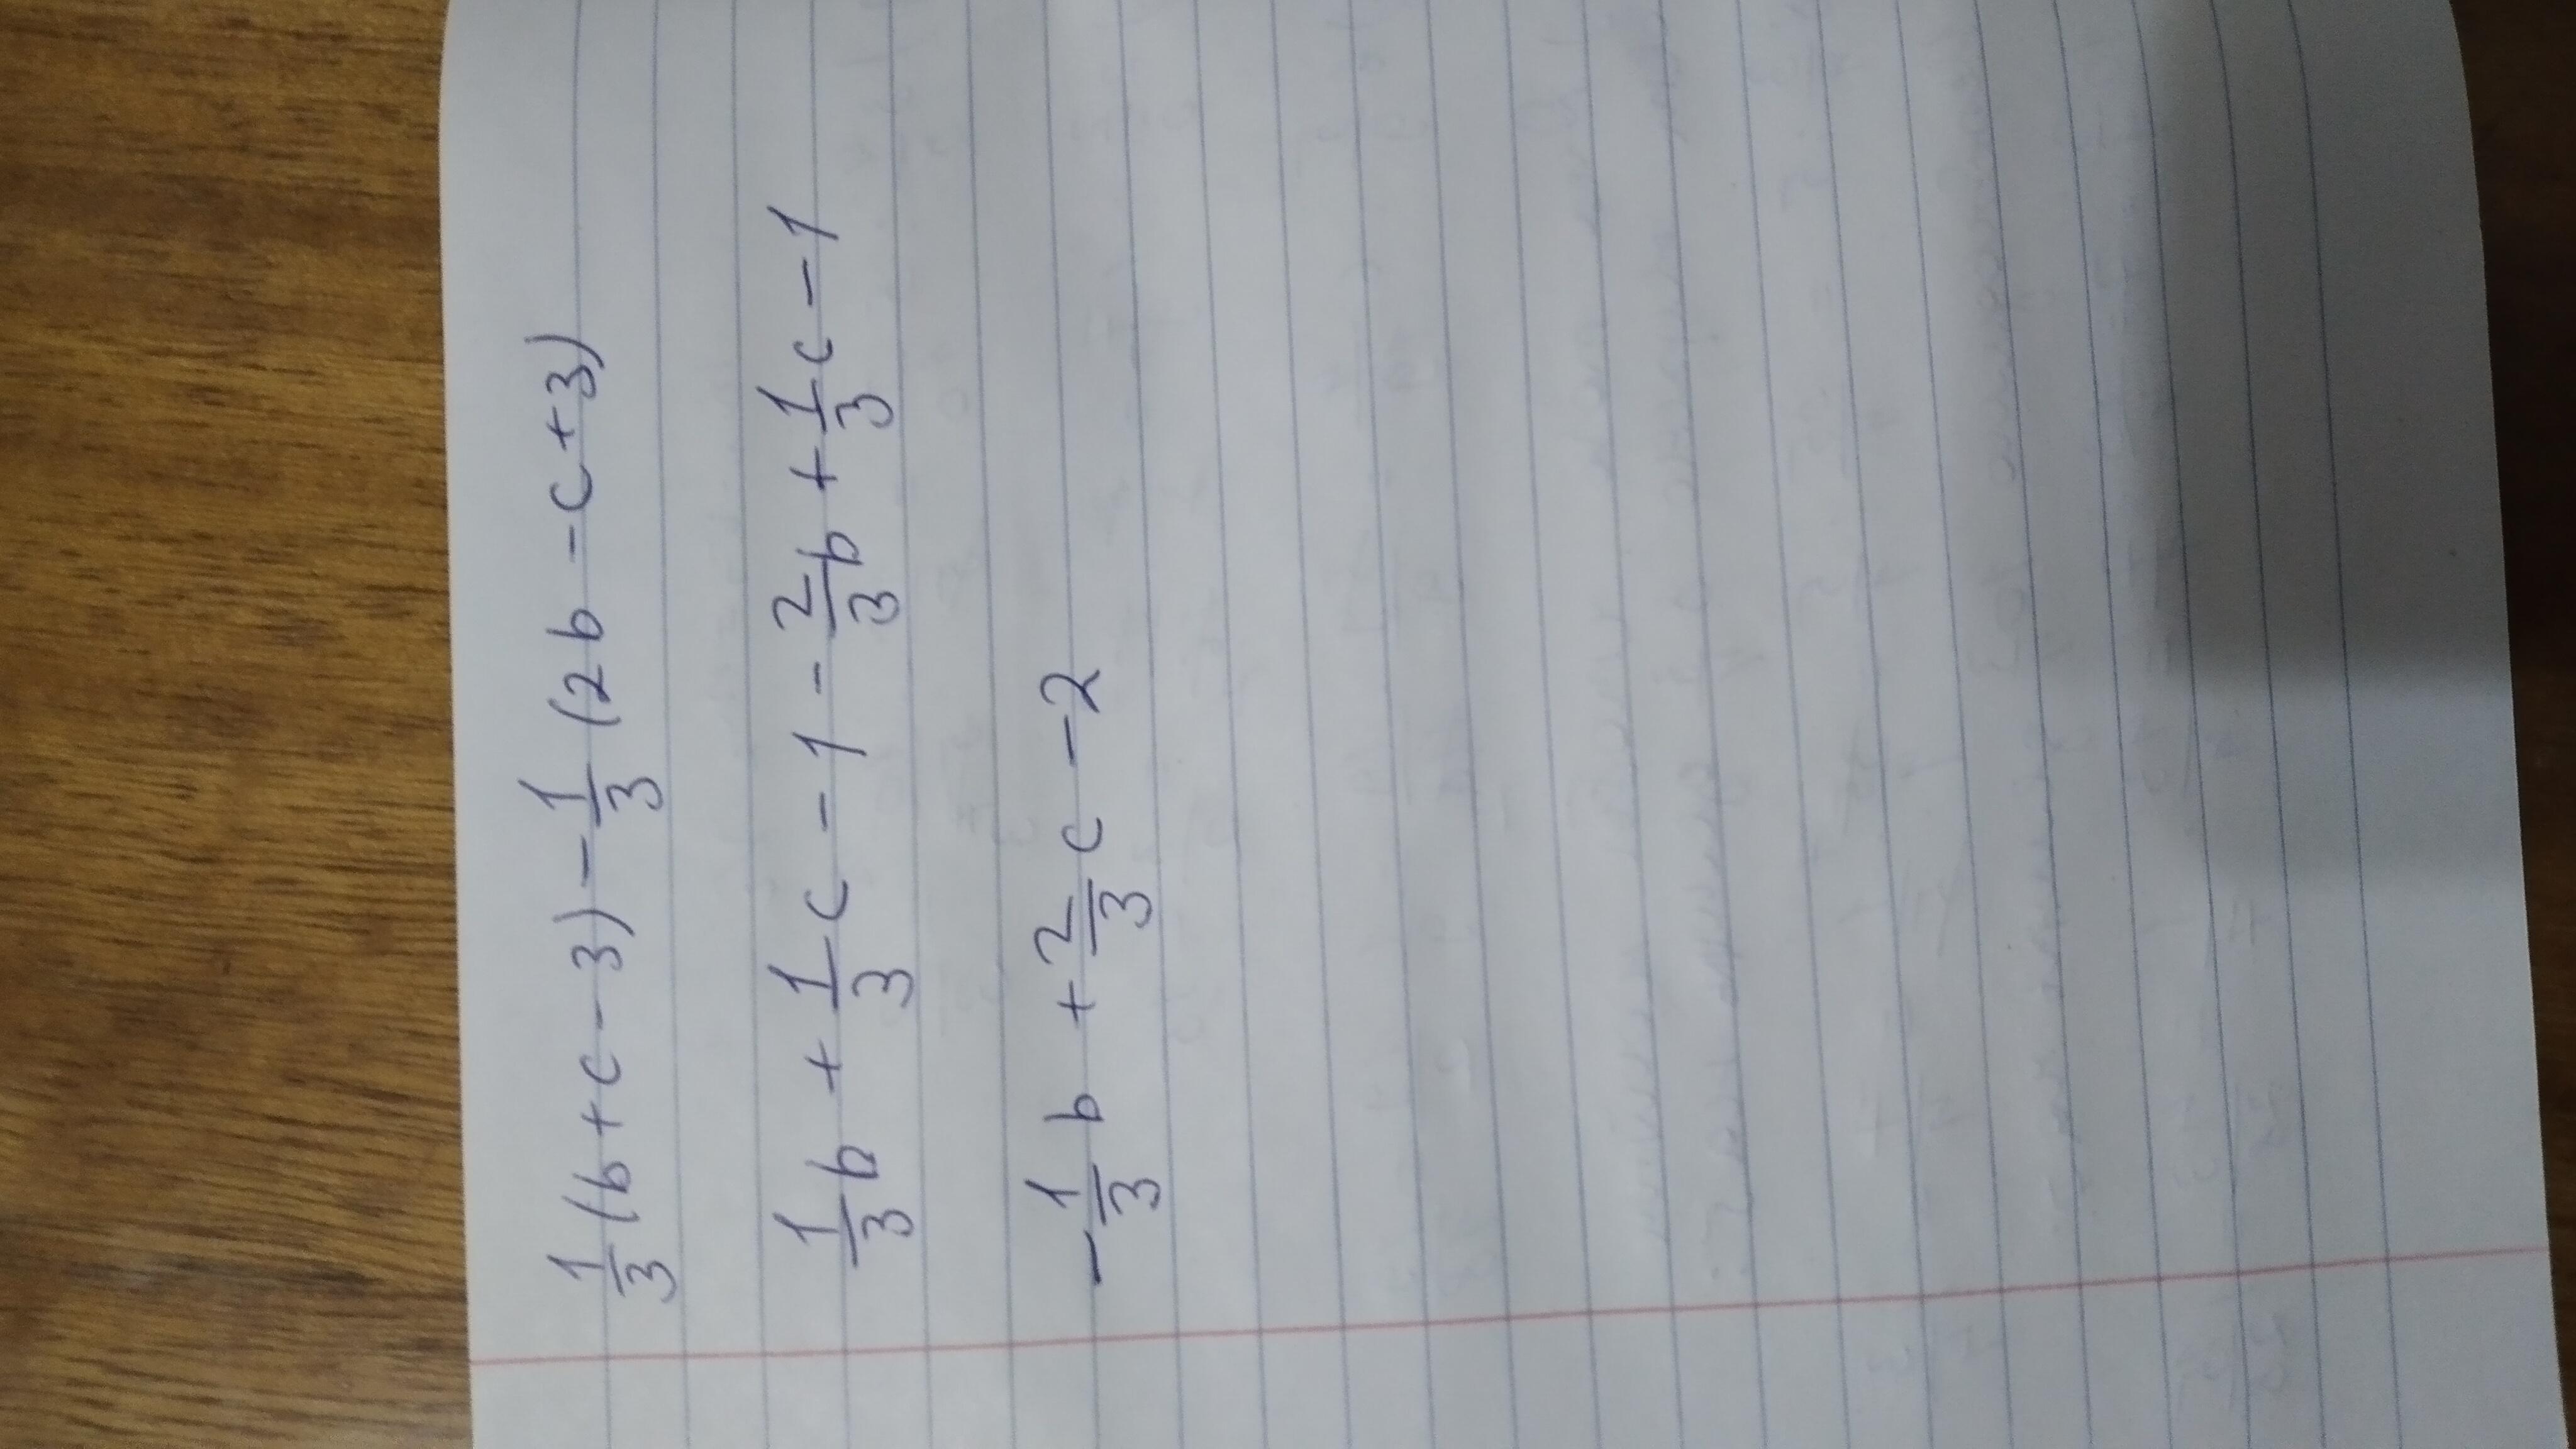 1/3 (b + c - 3) - 1/3 (2b - c + 3)
1/3 b + 1/3 c - 1 - 2/3 b + 1/3 c - 1
- 1/3 b + 2/3 c - 2